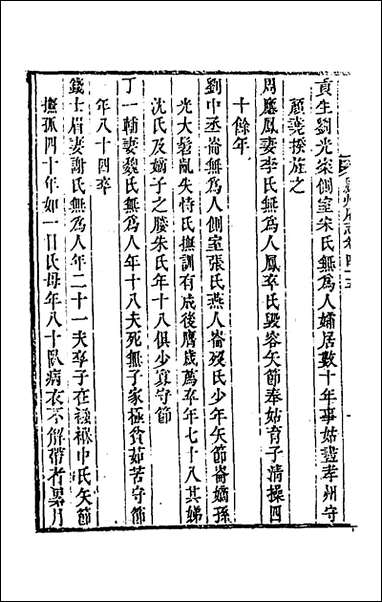 貢生劉光宋側室宋氏無為人孀居數十年事姑盡孝州守
顏堯揆旌之
周應鳳妻李氏無為人鳳卒氏毀容矢節奉姑育子清操四
十餘年
劉中丞崙無為人側室張氏燕人崙歿氏少年矢節崙嫡孫
光大髫齓失恃氏撫訓有成後膺歲薦卒年七十八其娣
沈氏及嫡子之媵朱氏年十八俱少寡守節
丁一輔妻魏氏無為人年十八夫死無子家極貧茹苦守節
年八十四卒
錢士眉妻謝氏無為人年二十一夫卒子在襁褓中氏矢節
撫孤四十年如一日氏母年八十臥病衣不解帶者累月